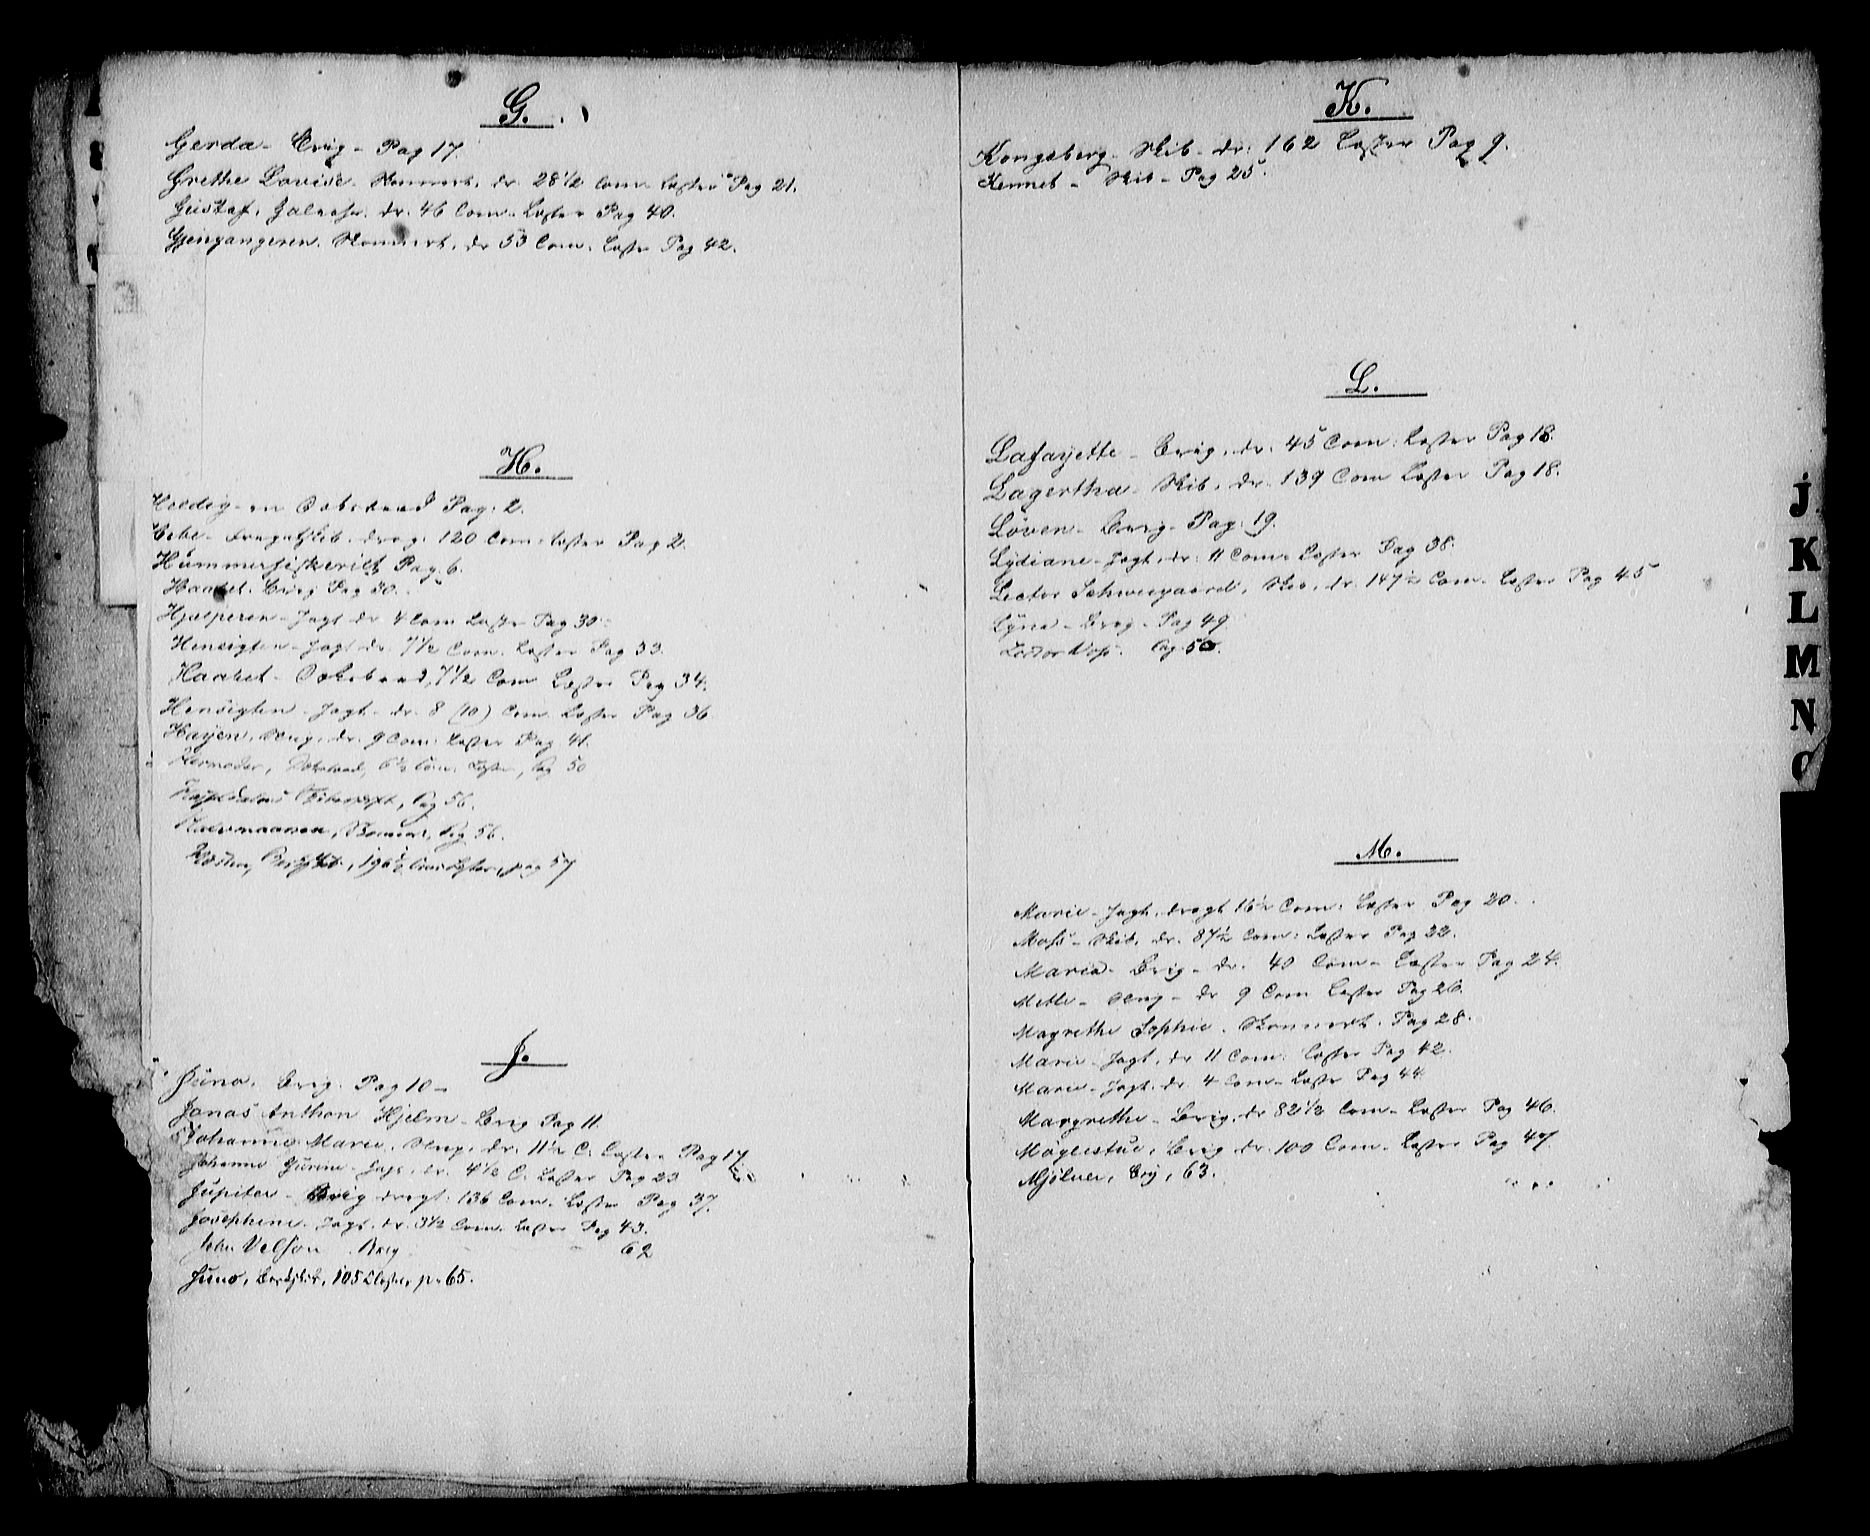 G.
Gerda - Brig - Pag 17.
Grethe Lovise - Skonnert. dr. 28 1/2 Com. Læster Pag 21.
Gustaf, Galease. dr. 46 Com. Læster Pag 40.
Gjengangeren. Skonnert. dr 53 Com. Læster Pag 42.
H.
Heldig - en Dæksbaad Pag: 2.
Hebe - Fregatskib. drag: 120 Com: Læster Pag 2.
Hummerfiskeriet Pag. 6.
Haabet. Brig Pag 30.
Hjælperen - Jagt dr 4 Com Læster Pag 30.
Hensigten - Jagt dr. 7 1/2 Com. Læster Pag 33.
Haabet - Dæksbaad, 7 1/2 Com Læster Pag 34.
Hensigten - Jagt - dr. 8 (10) Com Læster Pag 36.
Høyen, Slup, dr. 9 Com: Læster Pag 41.
Dæksbaad, 6 1/2 Com. Læster, Pag 50
Pag 56.
Halvmaanen, Skonnert, Pag 56.
Barkskib, 196 1/2 Com Læster, pag 57
J.
Juno. Brig. Pag 10 -
Jonas Anthon Hjelm - Brig Pag 11.
Johanne Marie, Slup, dr. 11 1/2 C. Læster Pag 17
Johanne - Jagt, dr. 4 1/2 C. Læster Pag 23
Jupiter - Brig dragt. 136 Com. Læster Pag 37.
Josephine. Jagt. dr. 3 1/2 Com. Læster Pag 43.
John Nelson. Brig 62
Juno, Barkskib, 105 Læster, p. 65.
K.
Kongsberg - Skib - dr: 162 Læster Pag 9.
Kennet - Skib - Pag 25.
L.
Lafayette - Brig. dr. 45 Com: Læster Pag 18.
Lagertha - Skib. dr. 139 Com Læster Pag 18.
Løven - Brig - Pag. 19.
Lydiane - Jagt, dr: 11 Com. Læster Pag 38.
Lector Schweigaard, Skib, dr. 147 1/2 Com. Læster Pag 45
Lyna - Brig - Pag 49
Lector Voss. Pag. 58.
M.
Marie - Jagt, dragt 16 1/2 Com: Læster Pag 20.
Moss - Skib. dr. 87 1/2 Com: Læster Pag 22.
Maria - Brig - dr. 40 Com - Læster Pag 24.
Mette - Slup - dr 9 Com Læster Pag 26.
Magrethe Sophie. Skonnert. Pag 28.
Marie - Jagt, dr 11 Com: Læster Pag 42.
Marie - Jagt. dr. 4 Com - Læster Pag 44.
Margrethe - Brig, dr 82 1/2 Com - Læster Pag 46.
Møglestue, Brig dr. 100 Com. Læster Pag 47.
Mjølner, Brig, 63.
J
K
L
M
N
O